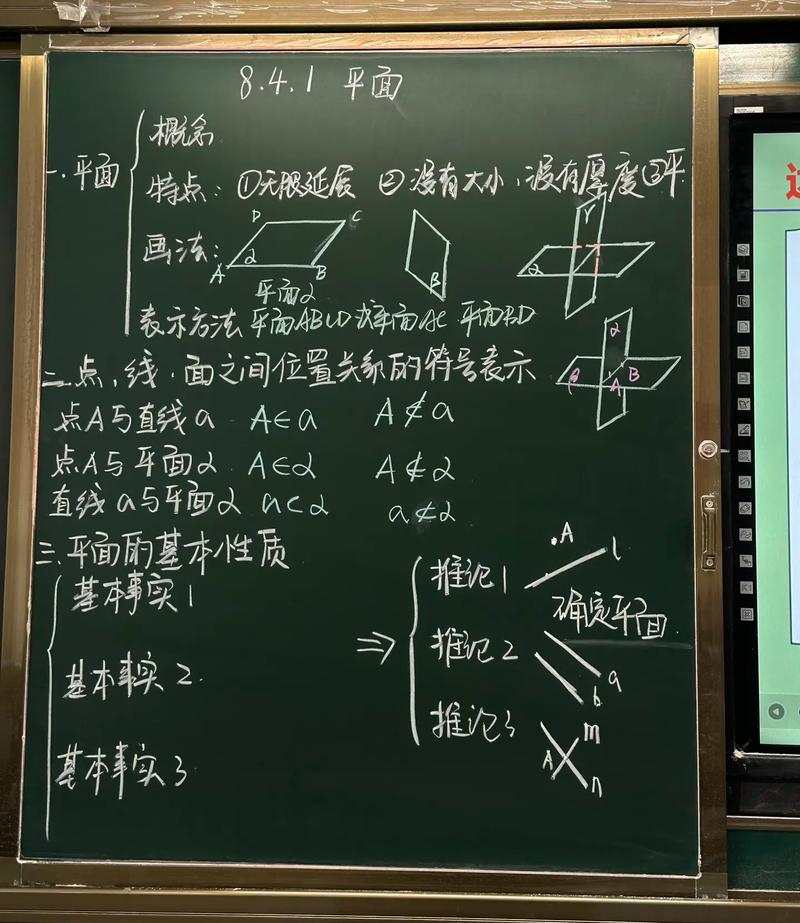 8.4.1 平面
一.平面
概念
特点:①无限延展 ②没有大小,没有厚度③平
画法:
D C
A α B
平面α
β
α γ
表示方法 平面ABCD 或平面AC 平面BD
二.点,线,面之间位置关系的符号表示
α
β A B
点A与直线a A∈a A∉a
点A与平面α A∈α A∉α
直线a与平面α a⊂α a⊄α
三.平面的基本性质
基本事实1
基本事实2.
基本事实3
⇒
推论1
.A l
确定平面.
推论2
b a
推论3
A m n